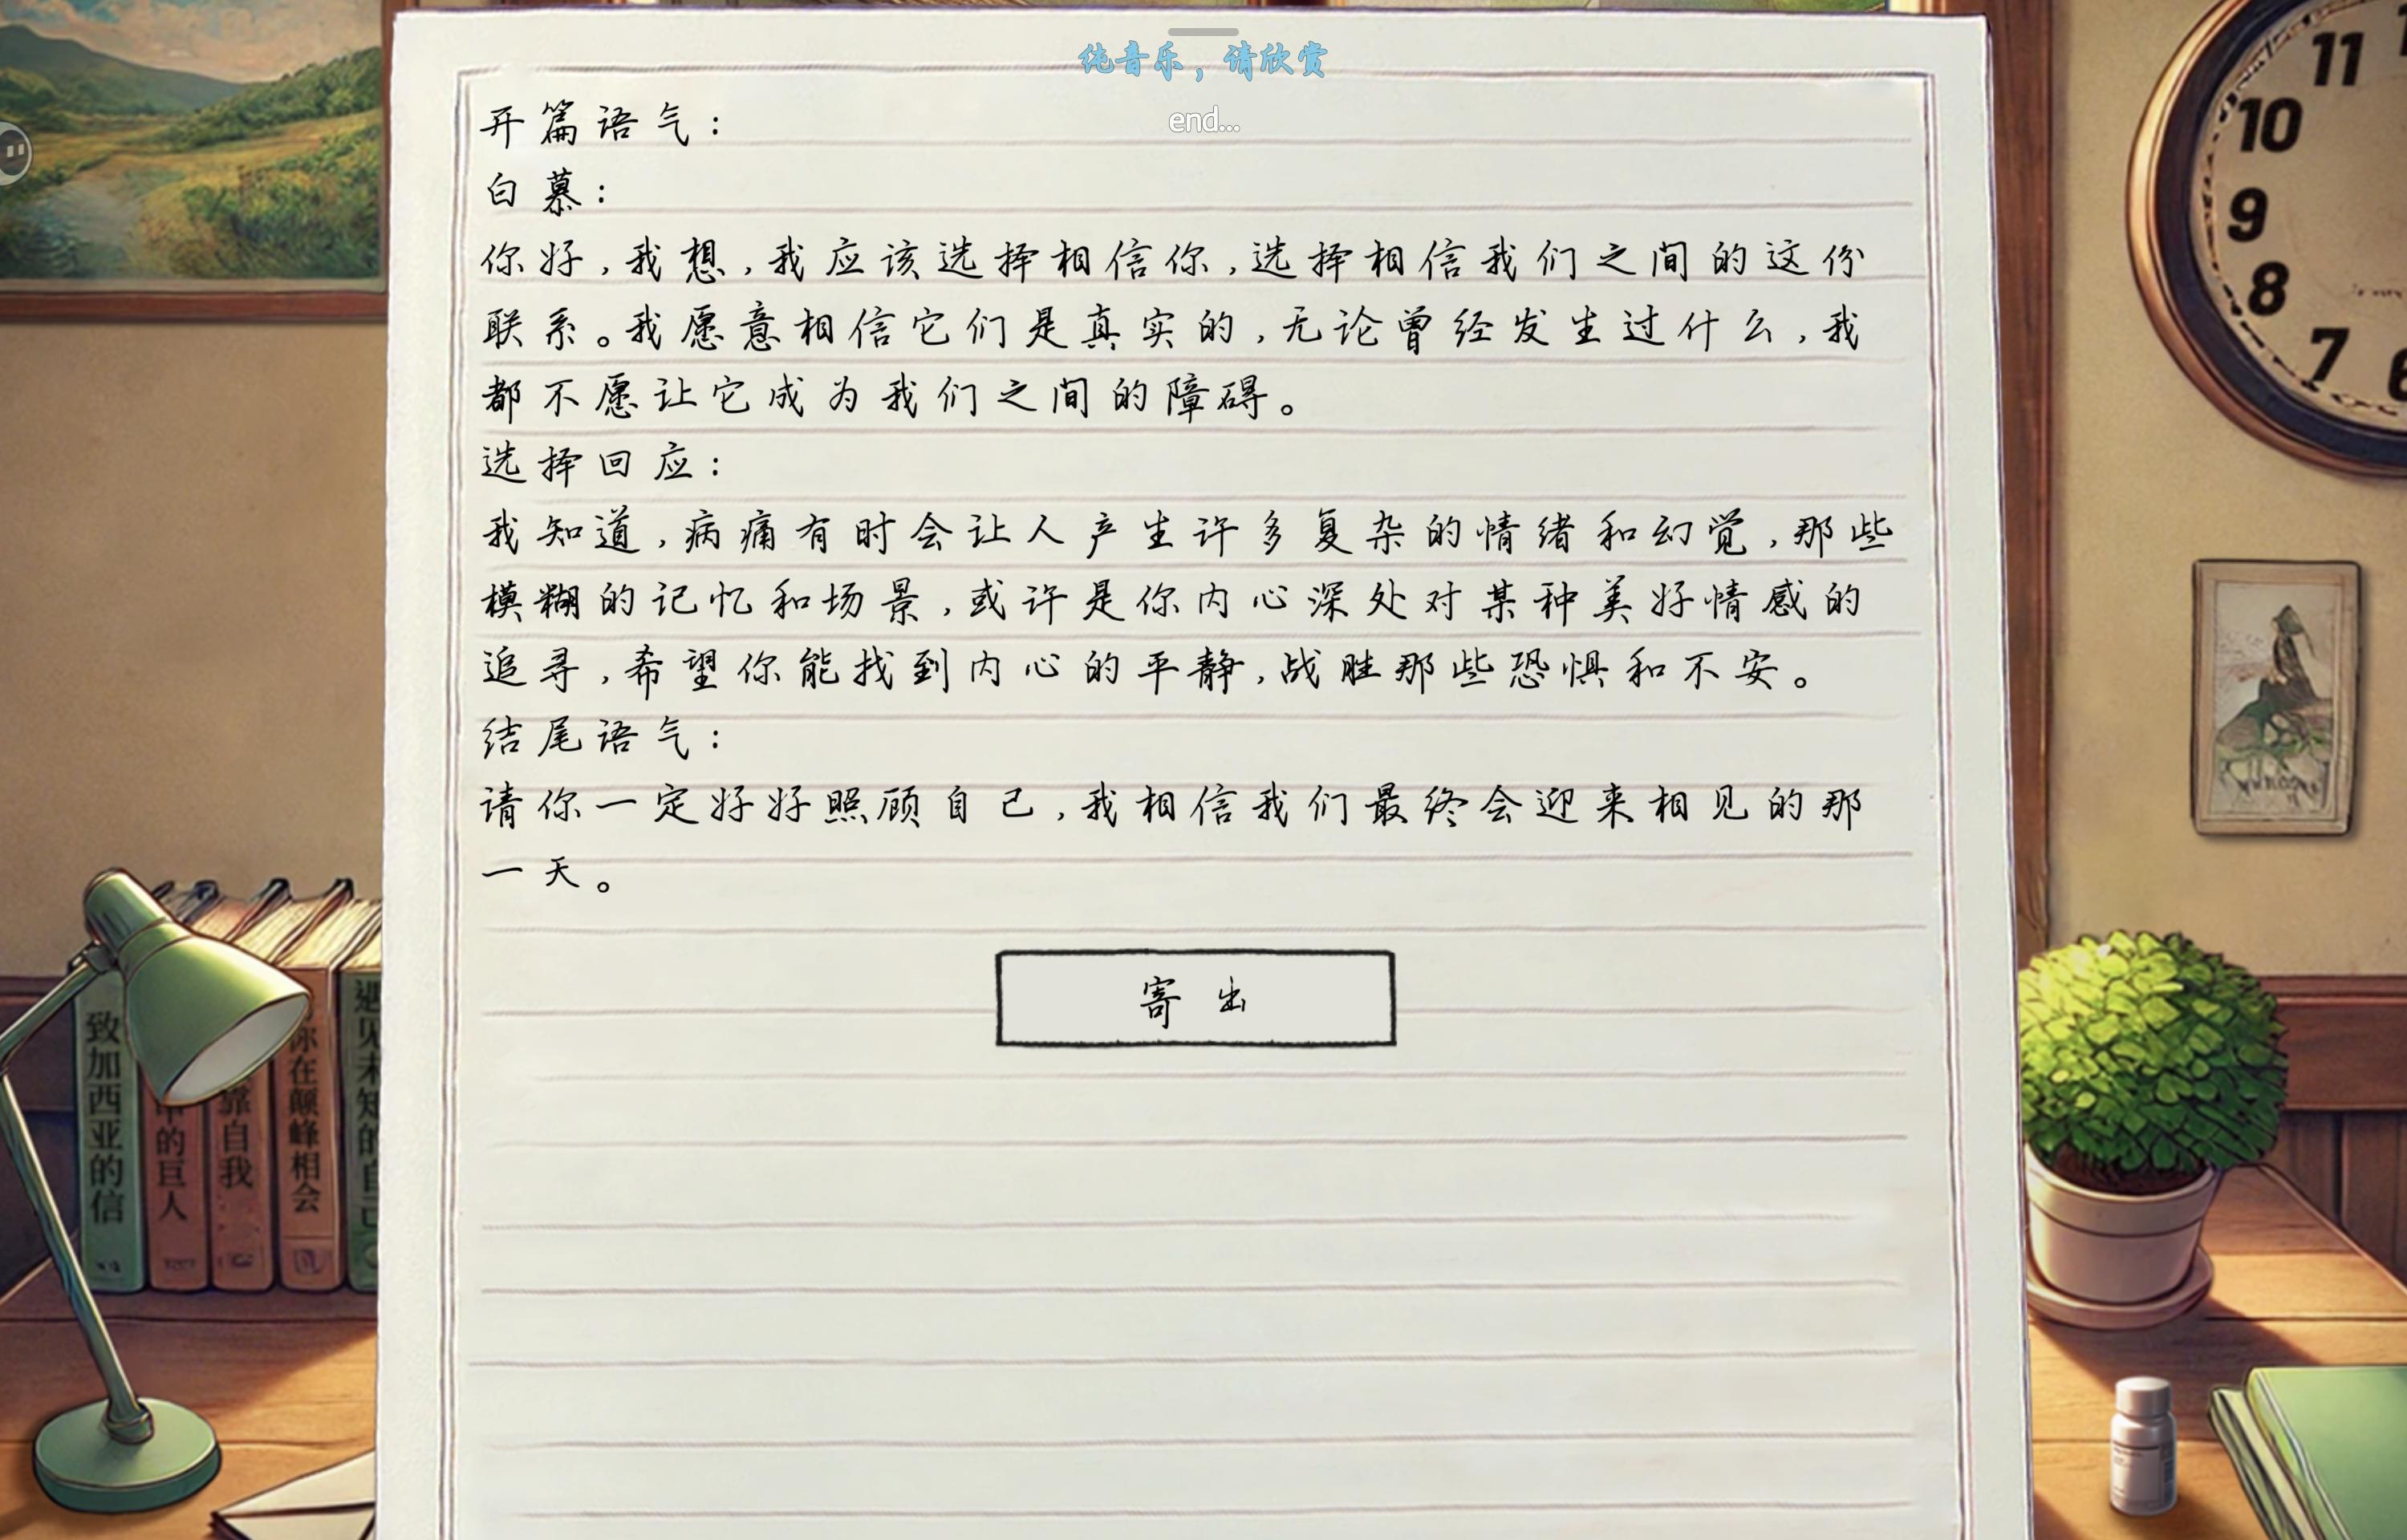 纯音乐，请欣赏
end...
开篇语气：
白慕：
你好，我想，我应该选择相信你，选择相信我们之间的这份
联系。我愿意相信它们是真实的，无论曾经发生过什么，我
都不愿让它成为我们之间的障碍。
选择回应：
我知道，病痛有时会让人产生许多复杂的情绪和幻觉，那些
模糊的记忆和场景，或许是你内心深处对某种美好情感的
追寻，希望你能找到内心的平静，战胜那些恐惧和不安。
结尾语气：
请你一定好好照顾自己，我相信我们最终会迎来相见的那
一天。
寄出
致加西亚的信
的巨人
靠自我
你在颠峰相会
遇见未知的自己
11
10
9
8
7
6